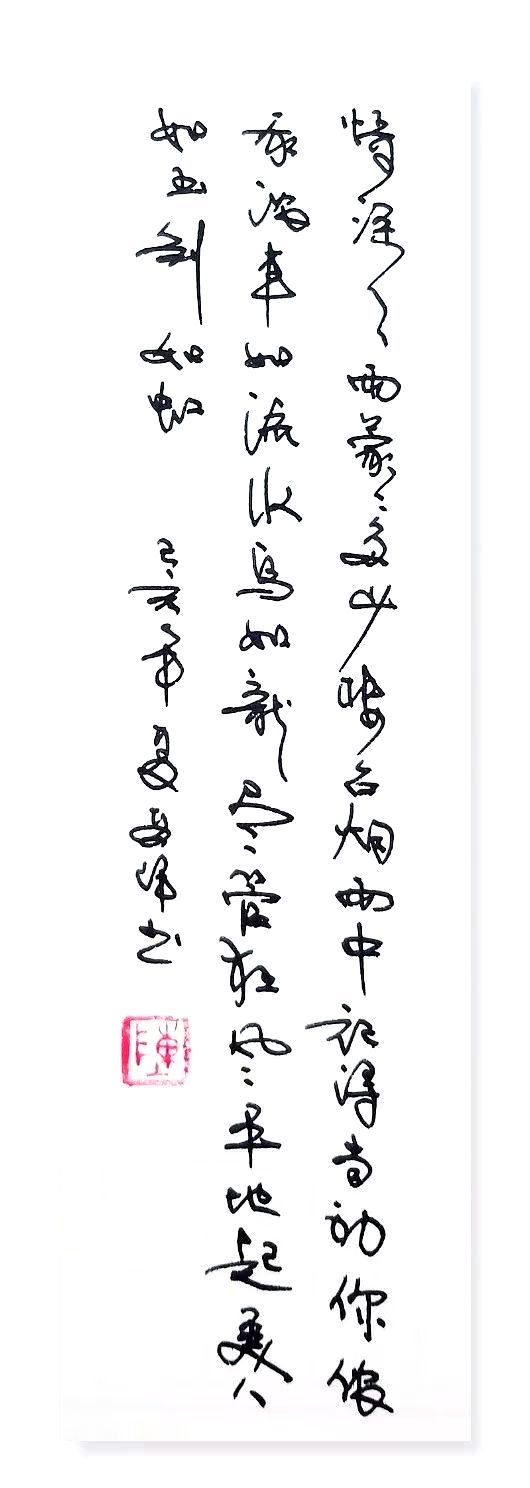 情深深雨蒙蒙多少楼台烟雨中记得当初你侬
我车如流水马如龙尽管狂风平地起美人
如玉剑如虹 己亥年夏书